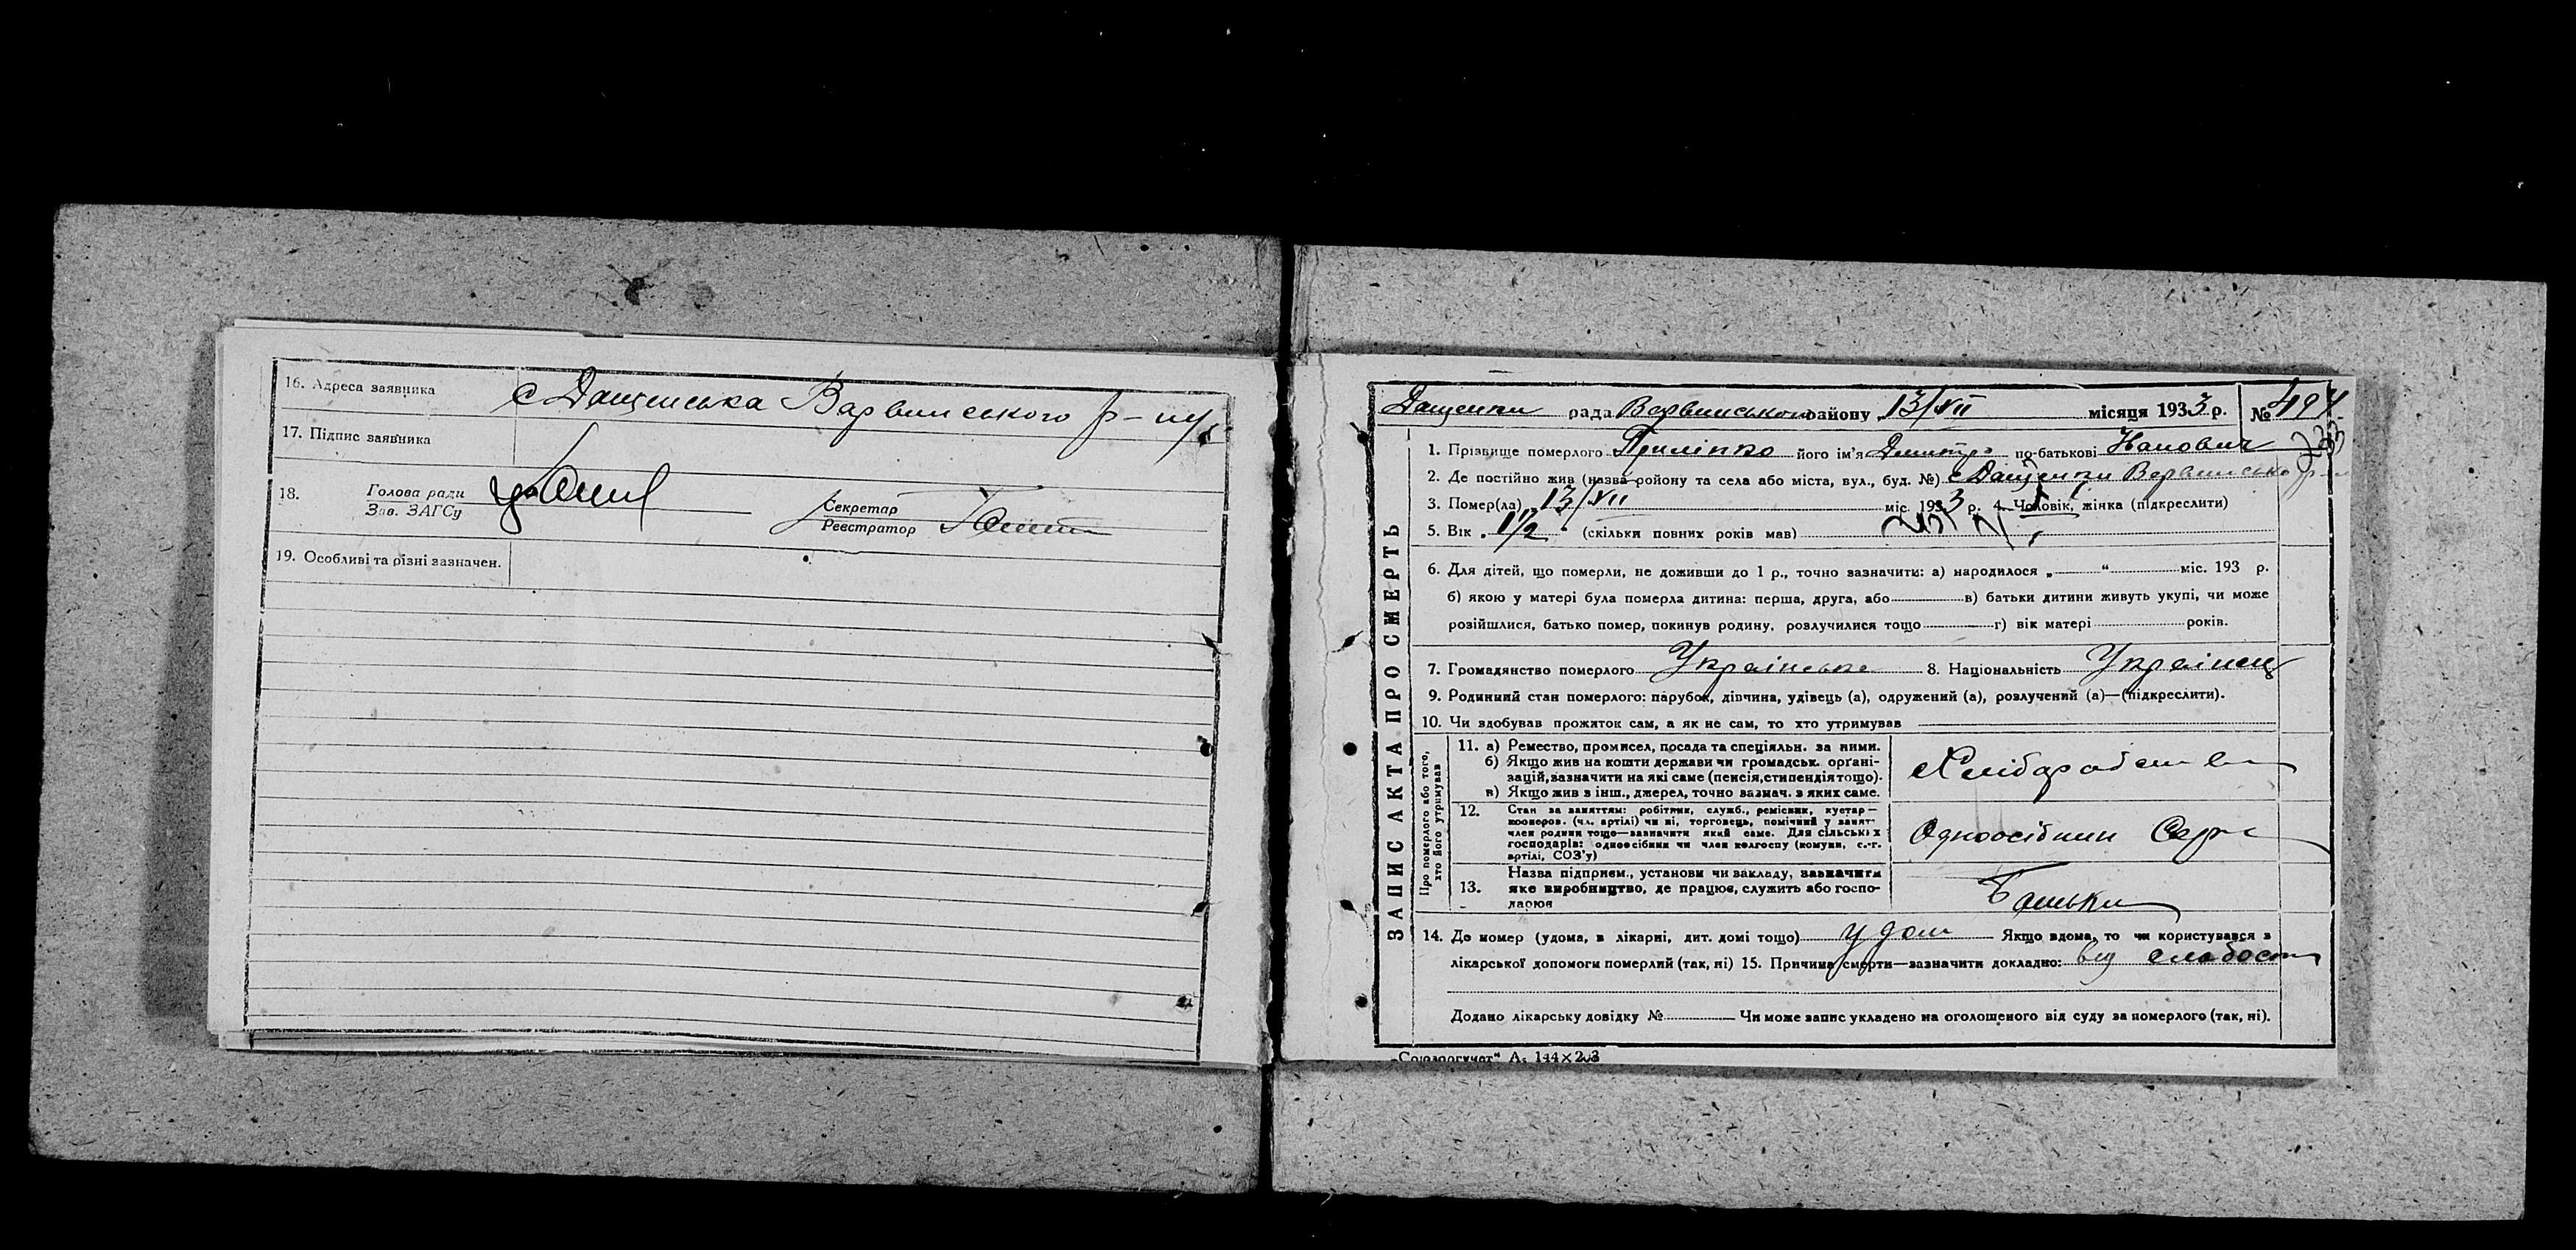 16. Адреса заявника с Дащенька Варвинського р-ну
17. Підпис заявника
18. Голова ради
Зав. ЗАГСу
Секретар
Реєстратор
19. Особливі та різні зазначен.
ЗАПИС АКТА ПРО СМЕРТЬ
Дащенки рада Варвинського району 13/VII місяця 1933 р. № 494
1. Прізвище померлого Приліпко його ім'я Дмитро по-батькові
2. Де постійно жив (назва району та села або міста, вул., буд. №) с Дащенки Варвинсько р-н
3. Помер(ла) „13/VII міс. 1933 р. 4. Чоловік, жінка (підкреслити)
5. Вік „1/2" (скільки повних років мав)
6. Для дітей, що померли, не доживши до 1 р., точно зазначити: а) народилося „ “ міс. 193 р.
б) якою у матері була померла дитина: перша, друга, або в) батьки дитини живуть укупі, чи може
розійшлися, батько помер, покинув родину, розлучилися тощо г) вік матері років.
7. Громадянство померлого Українське 8. Національність Українец
9. Родинний стан померлого: парубок, дівчина, удівець (а), одружений (а), розлучений (а)—(підкреслити).
10. Чи здобував прожиток сам, а як не сам, то хто утримував
Про померлого або того,
хто його утримував
11. а) Ремество, промисел, посада та спеціяльн. за ними.
б) Якщо жив на кошти держави чи громадськ. органі-
зацій, зазначити на які саме (пенсія, стипендія тощо).
в) Якщо жив з інш., джерел, точно зазнач. з яких саме.
12. Стан за заняттям: робітник, служб., ремісник, кустар—
кооперов. (чл. артілі) чи ні, торговець, помічний у занят-
член родини тощо—зазначити який саме. Для сільських
господарів: одноосібник чи член колгоспу (комуни, с.-г.
артілі, СОЗ'у)
Одноосібник Сер
13. Назва підприєм., установи чи закладу, зазначити
яке виробництво, де працює, служить або госпо-
дарює
Батьки
14. Де помер (удома, в лікарні, дит. домі тощо) у дом Якщо вдома, то чи користувався з
лікарської допомоги померлий (так, ні) 15. Причина смерти—зазначити докладно: від слабости
Додано лікарську довідку № Чи може запис укладено на оголошеного від суду за померлого (так, ні).
„Союзоргучет“ А. 144×203